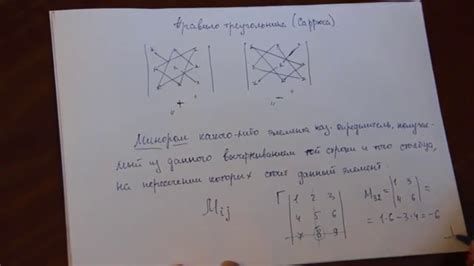 Правило треугольника (Саррюса)
"+" "−"
Минором какого-либо элемента наз. определитель, получае-
мый из данного вычёркиванием той строки и того столбца,
на пересечении которых стоит данный элемент.
Mij
Г |1 2 3| M32 = |1 3| =
|4 5 6| |4 6|
|7 8 9| = 1·6 − 3·4 = −6